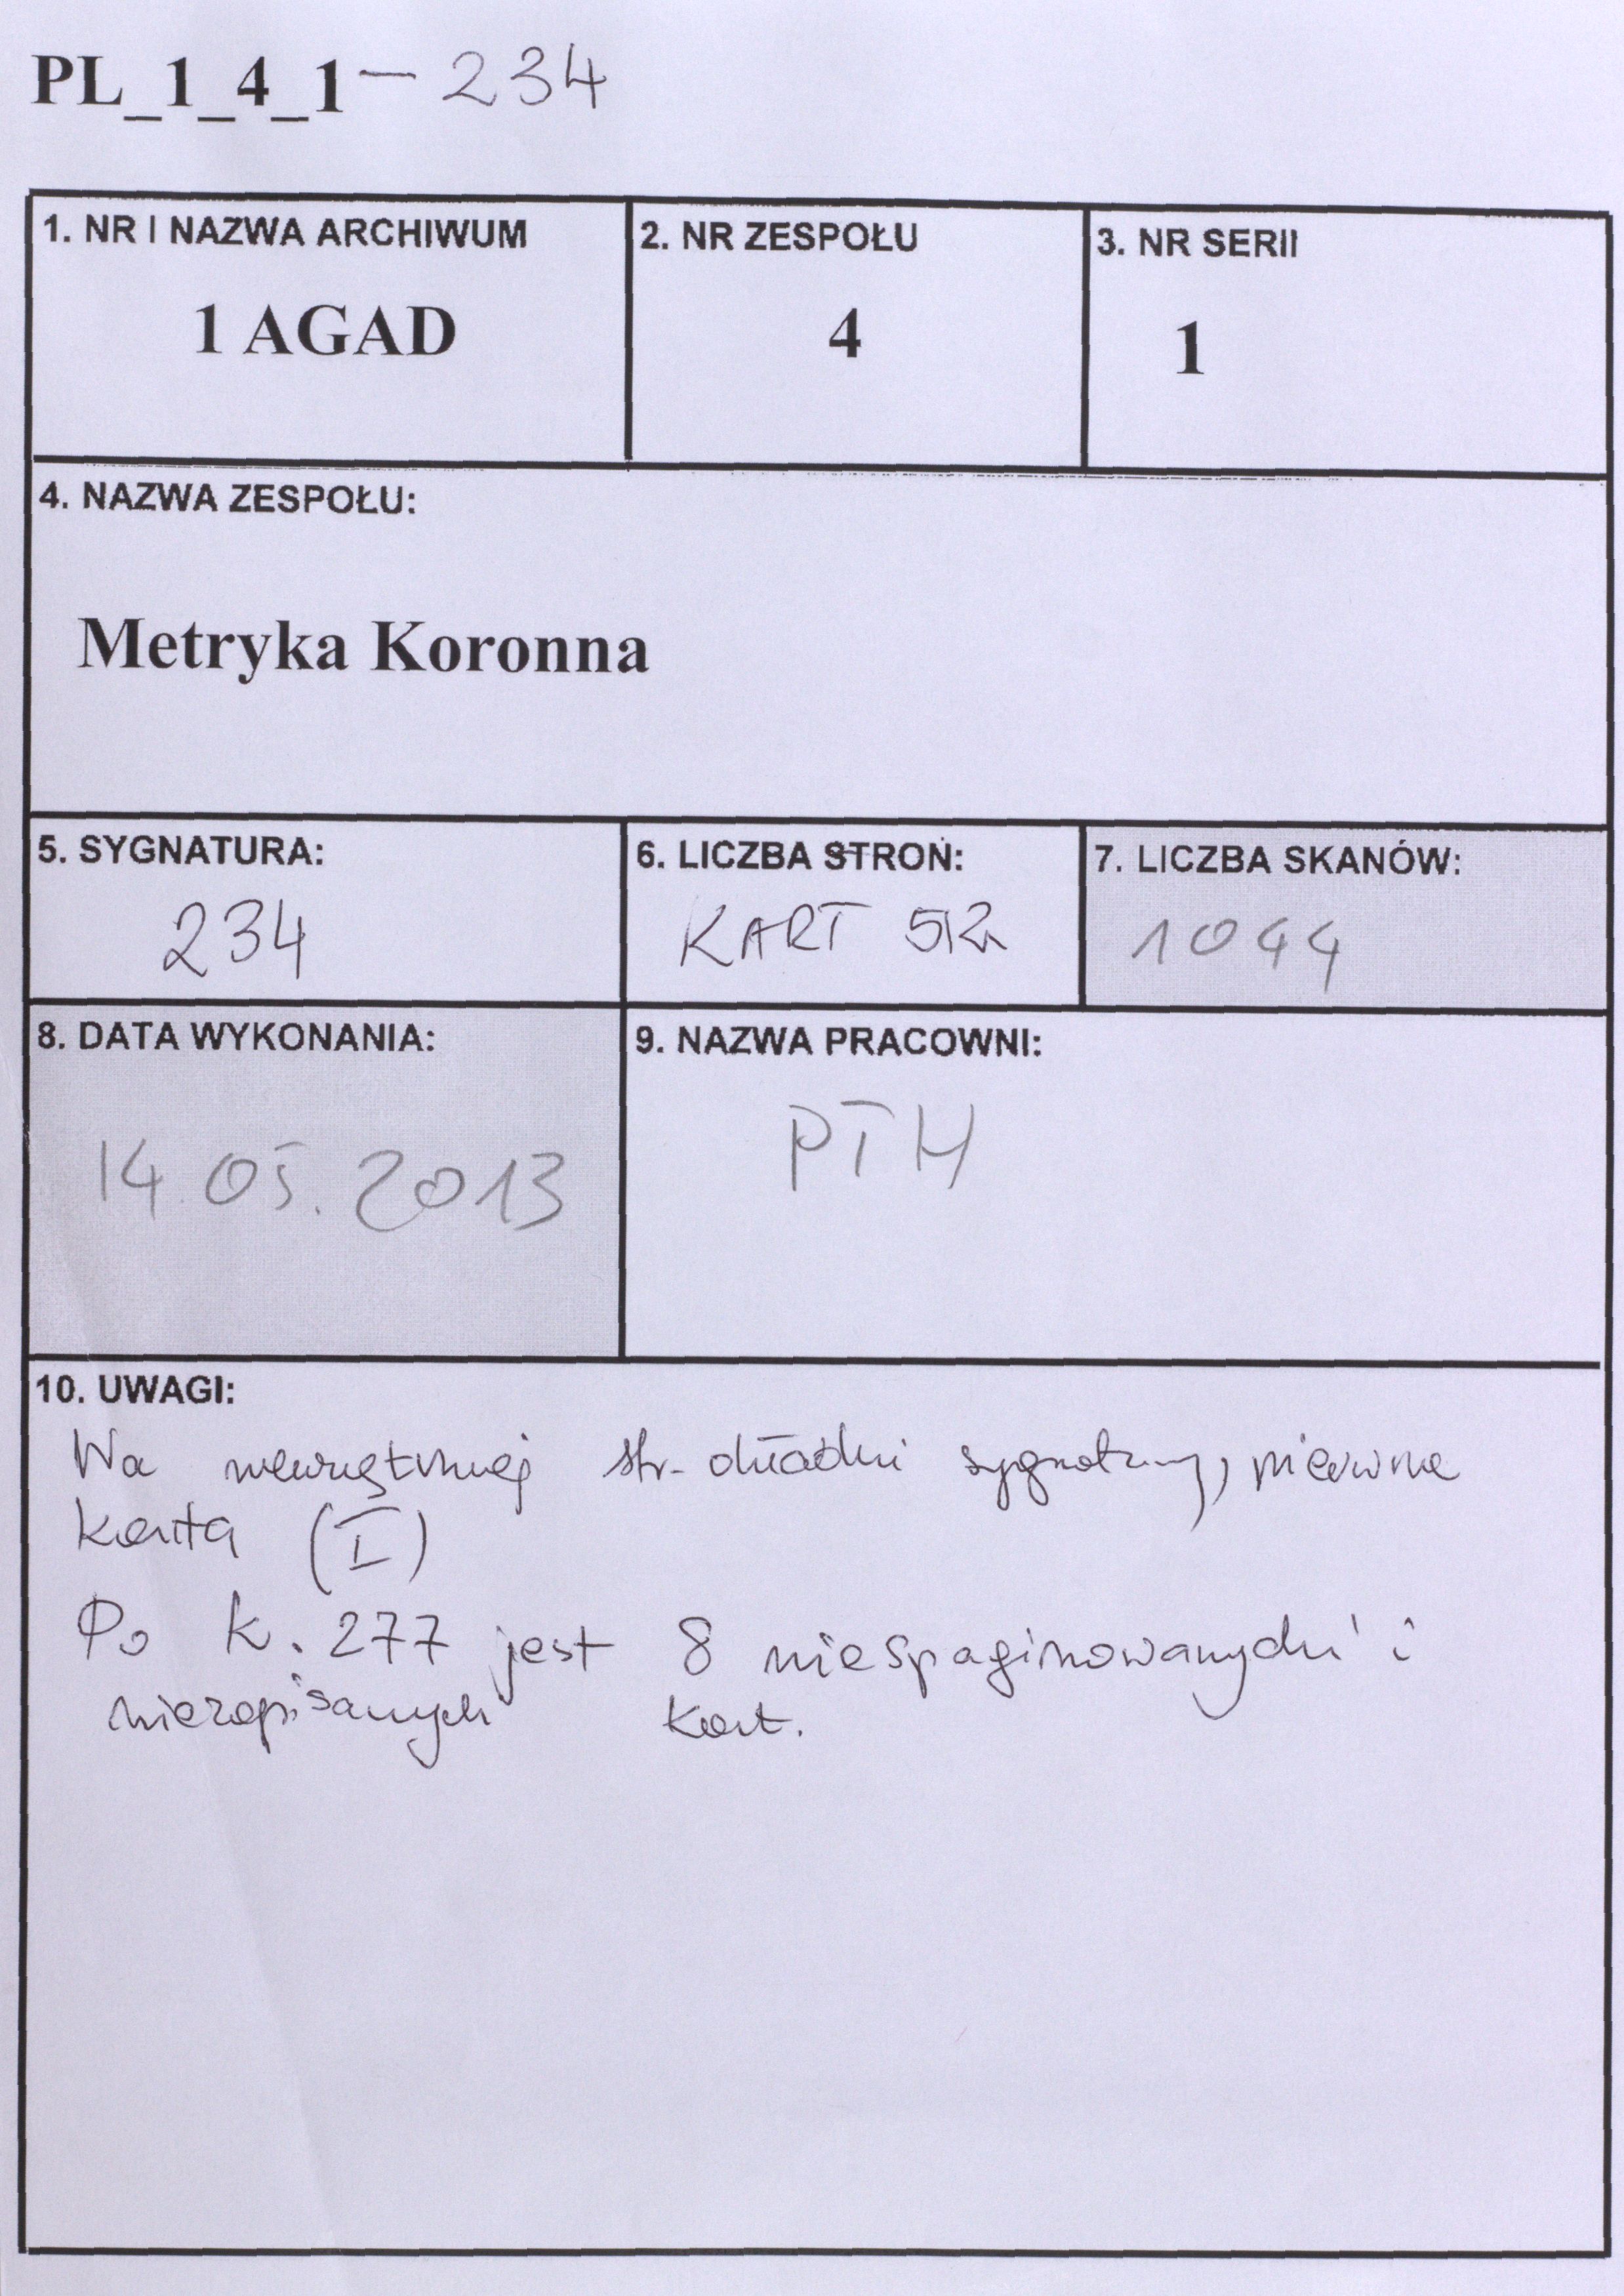 PL_1_4_1 - 234
1. NR I NAZWA ARCHIWUM
1 AGAD
2. NR ZESPOŁU
4
3. NR SERII
1
4. NAZWA ZESPOŁU:
Metryka Koronna
5. SYGNATURA:
234
6. LICZBA STRON:
KART 512
7. LICZBA SKANÓW:
1044
8. DATA WYKONANIA:
14.05.2013
9. NAZWA PRACOWNI:
PTH
10. UWAGI:
Na wewnętrznej str. okładki sygnatury, pierwsza
karta (I)
Po k. 277 jest 8 niespaginowanych i
niezapisanych kart.